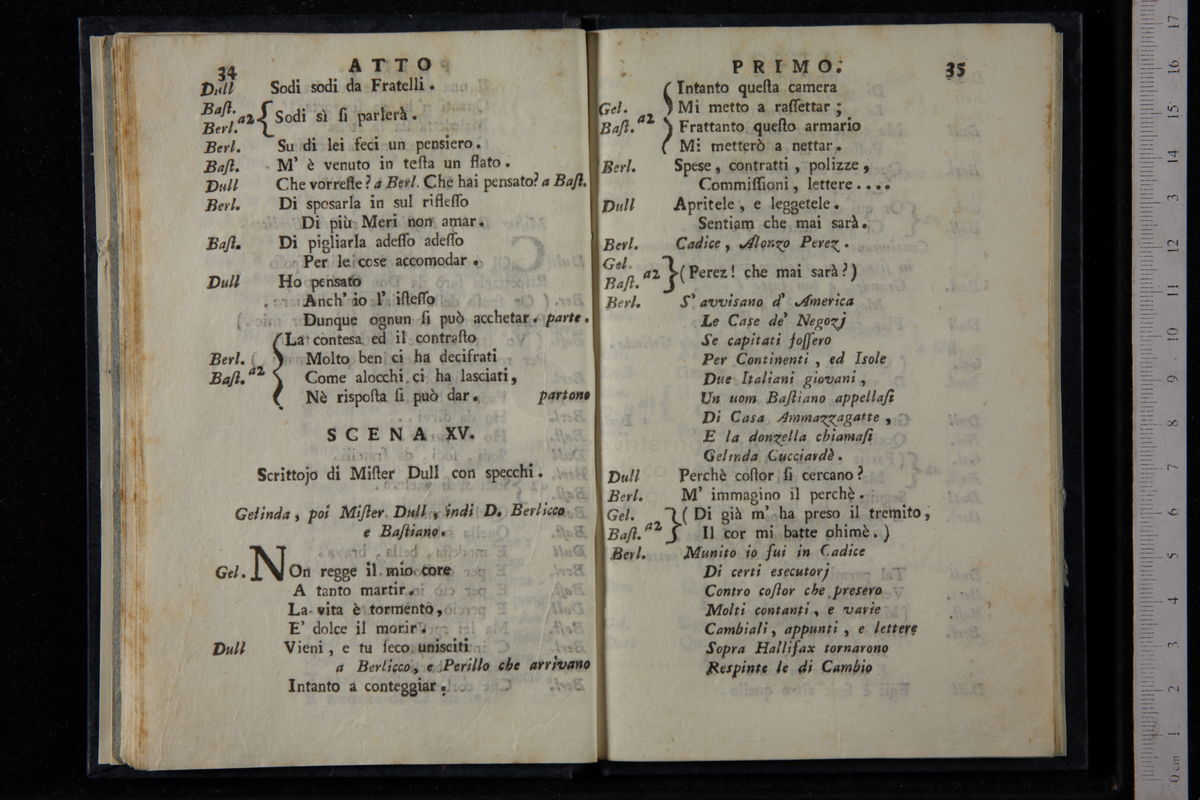 34
ATTO
Dull Sodi sodi da Fratelli.
Baſt.
Berl. a2 { Sodi sì ſi parlerà.
Berl. Su di lei feci un pensiero.
Baſt. M' è venuto in teſta un flato.
Dull Che vorreſte? a Berl. Che hai pensato? a Baſt.
Berl. Di sposarla in sul rifleſſo
Di più Meri non amar.
Baſt. Di pigliarla adeſſo adeſſo
Per le cose accomodar.
Dull Ho pensato
Anch' io l' iſteſſo
Dunque ognun ſi può acchetar. parte.
{ La contesa ed il contraſto
Berl. Molto ben ci ha decifrati
Baſt. a2 Come alocchi ci ha lasciati,
Nè riſpoſta ſi può dar. partono
SCENA XV.
Scrittojo di Miſter Dull con specchi.
Gelinda, poi Miſter Dull, indi D. Berlicco
e Baſtiano.
Gel. NOn regge il mio core
A tanto martir.
La vita è tormento,
E' dolce il morir.
Dull Vieni, e tu ſeco unisciti
a Berlicco, e Perillo che arrivano
Intanto a conteggiar.
PRIMO.
35
{ Intanto queſta camera
Gel. Mi metto a raſſettar;
Baſt. a2 Frattanto queſto armario
Mi metterò a nettar.
Berl. Spese, contratti, polizze,
Commiſſioni, lettere....
Dull Apritele, e leggetele.
Sentiam che mai sarà.
Berl. Cadice, Alonzo Perez.
Gel.
Baſt. a2 } (Perez! che mai sarà?)
Berl. S' avvisano d' America
Le Case de' Negozj
Se capitati foſſero
Per Continenti, ed Isole
Due Italiani giovani,
Un uom Baſtiano appellaſi
Di Casa Ammazzagatte,
E la donzella chiamaſi
Gelinda Cucciardè.
Dull Perchè coſtor ſi cercano?
Berl. M' immagino il perchè.
Gel. } ( Di già m' ha preso il tremito,
Baſt. a2 Il cor mi batte ohimè. )
Berl. Munito io fui in Cadice
Di certi esecutorj
Contro coſtor che presero
Molti contanti, e varie
Cambiali, appunti, e lettere
Sopra Hallifax tornarono
Respinte le di Cambio